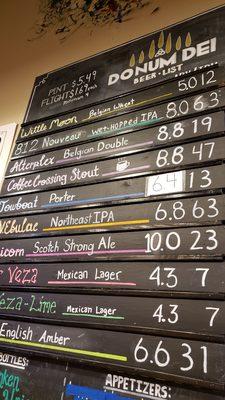 DONUM DEI
BEER · LIST
PINT $5.49
FLIGHTS $1.69 each
Wittle Moron Belgian Wheat 5.0 12
812 Nouveau Wet-Hopped IPA 8.0 63
Alterplex Belgian Double 8.8 19
Coffee Crossing Stout 8.8 47
Towboat Porter 6.4 13
Nebulae Northeast IPA 6.8 63
icorn Scotch Strong Ale 10.0 23
Veza Mexican Lager 4.3 7
eza-Lime Mexican Lager 4.3 7
English Amber 6.6 31
BOTTLES:
APPETIZERS: